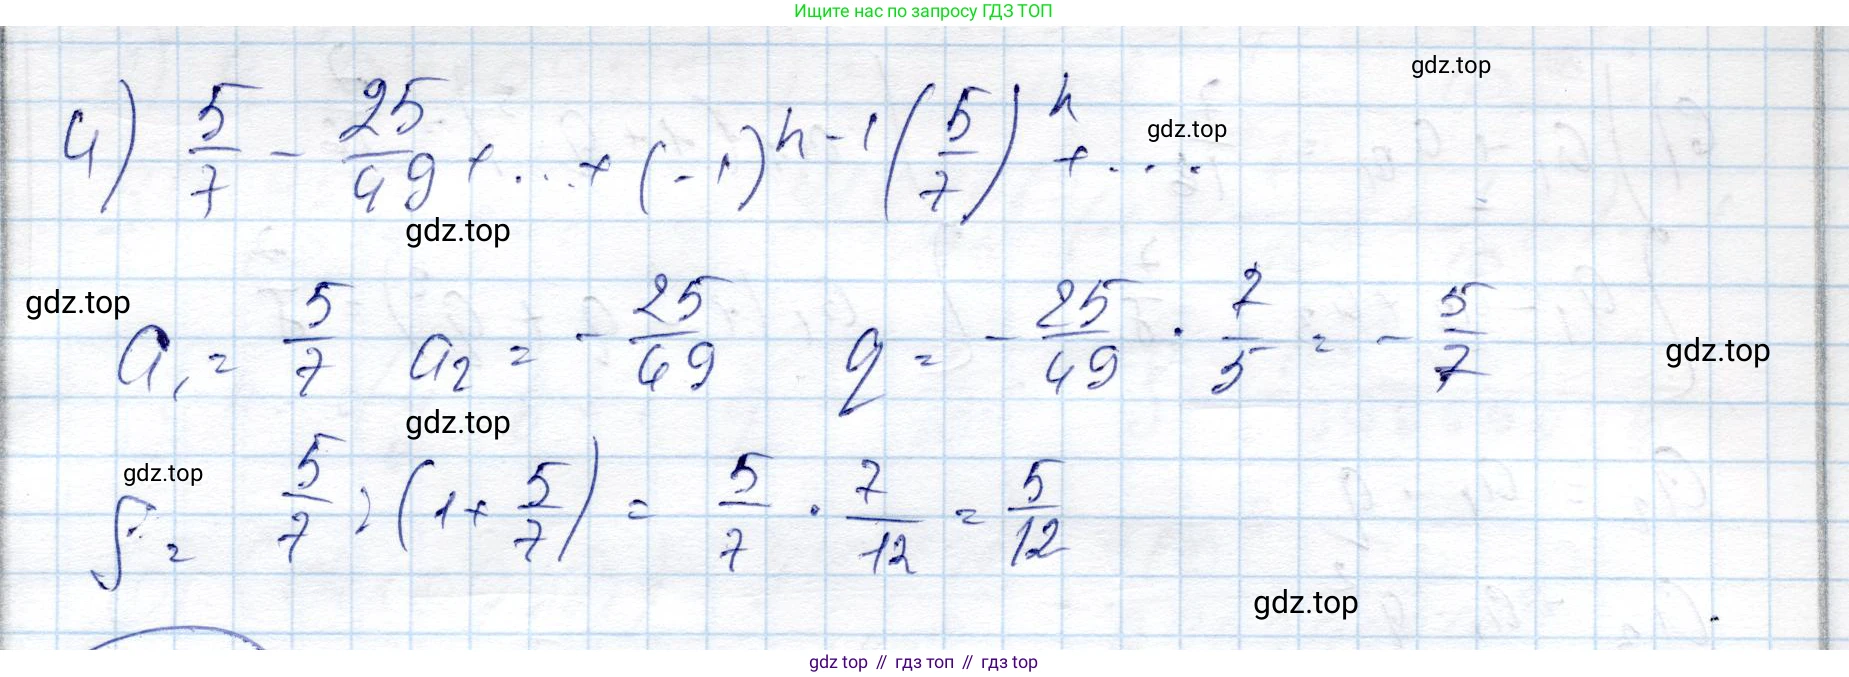 Ищите нас по запросу ГДЗ ТОП
gdz.top
4) 5/7 - 25/49 + ... + (-1)^(n-1) (5/7)^n + ...
gdz.top
gdz.top
gdz.top
a₁ = 5/7 a₂ = - 25/49 q = - 25/49 · 7/5 = - 5/7
gdz.top
gdz.top
gdz.top
S = 5/7 : (1 + 5/7) = 5/7 · 7/12 = 5/12
gdz.top
gdz top // гдз топ // гдз top